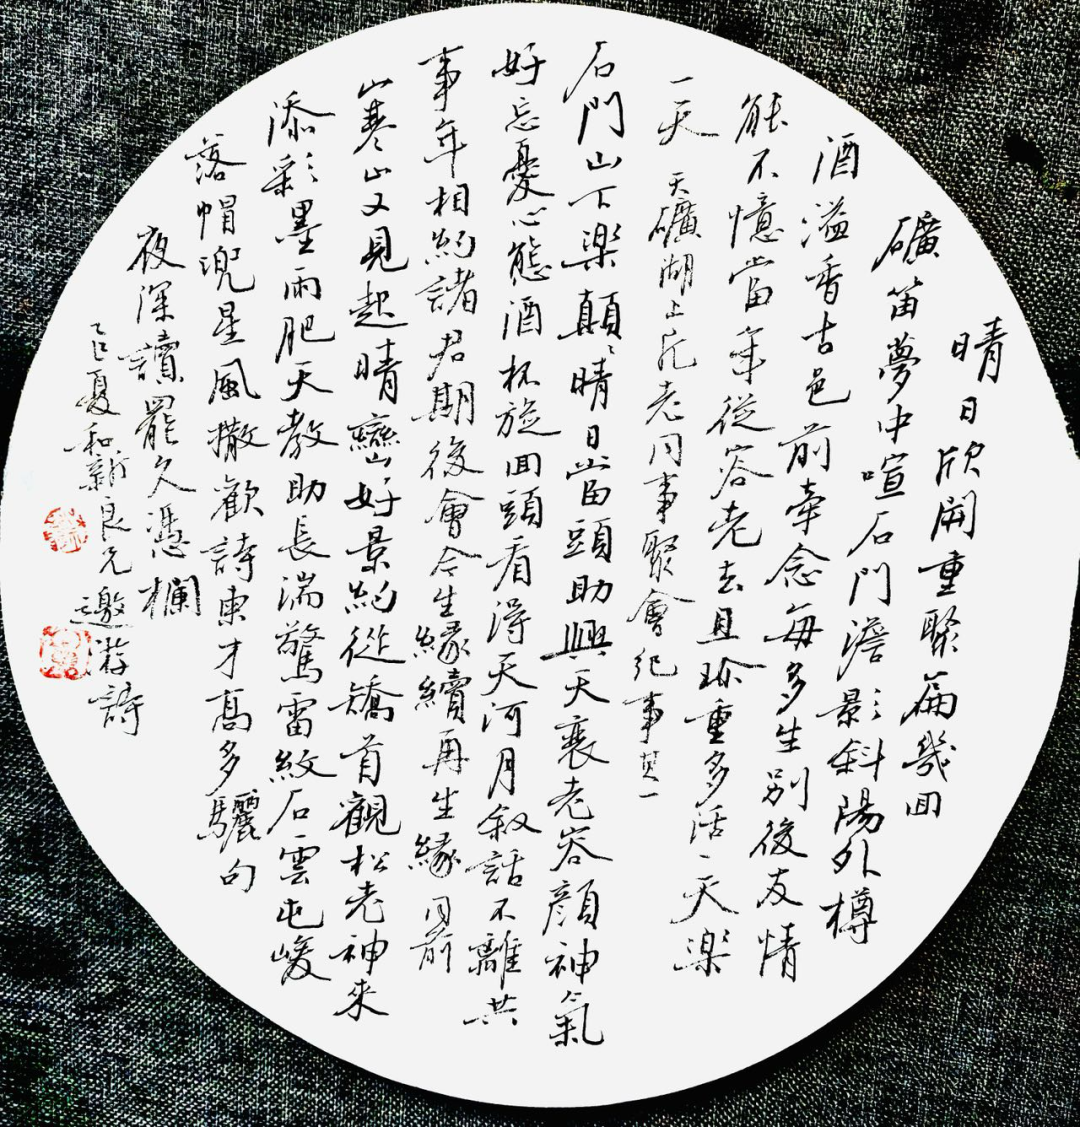 晴日欣開重聚篇幾回
礦笛夢中喧石門澹影斜陽外樽
酒溢香古邑前牽念每多生別後友情
能不憶當年從容老去且珍重多活一天樂
一天 天礦湖上死老同事聚會紀事其一
石門山下樂顛顛晴日當頭助興天喪老容顏神氣
好忘憂心態酒杯旋回頭看浔天河月叙話不離共
事年相約諸君期後會今生緣續再生緣同前
山寒山又見起晴巒好景紀從矯首觀松老神來
添彩墨雨肥天教助長湍驚雷紋石雲屯峻
落帽兜星風撒歡詩東才高多驪句
夜深讀罷久憑欄
乙巳夏和新良兄邀游詩